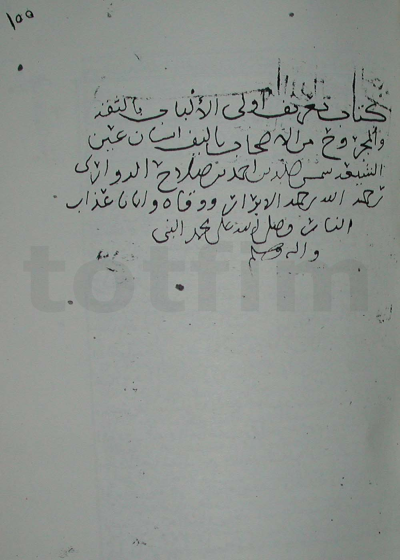 ١٥٥
كتاب تعريف أولى الألباب بالثقة
والمجروح من الأصحاب تأليف انسان عين
الشيعة شمس الدين احمد بن صلاح الدواري
رحمه الله رحمة الابرار ووقاه وايانا عذاب
النار وصلى الله على محمد النبي
واله وسلم
totfim